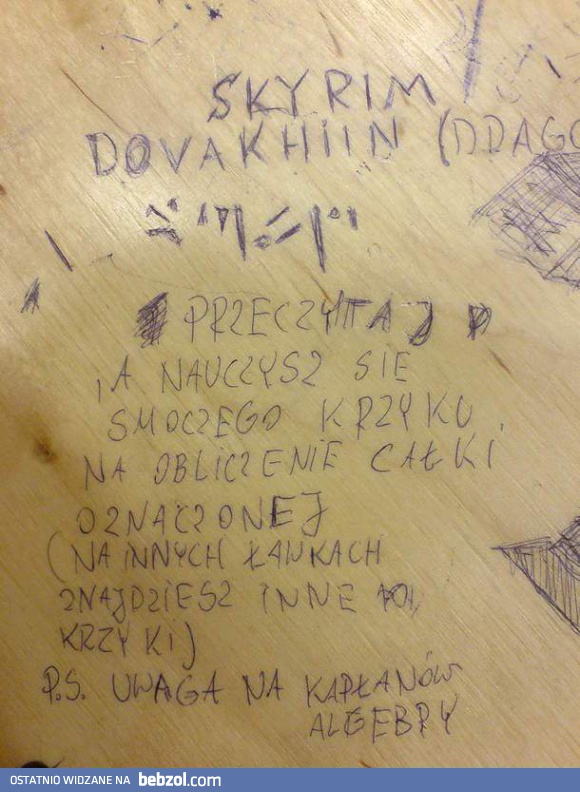 SKYRIM
DOVAKHIIN (DDAGO
PRZECZYTAJ
,A NAUCZYSZ SIE
SMOCZEGO KRZYKU
NA OBLICZENIE CAŁKI
OZNACZONEJ
(NA INNYCH ŁAWKACH
ZNAJDZIESZ INNE
KRZYKI)
P.S. UWAGA NA KAPŁANÓW
ALGEBRY
OSTATNIO WIDZANE NA bebzol.com